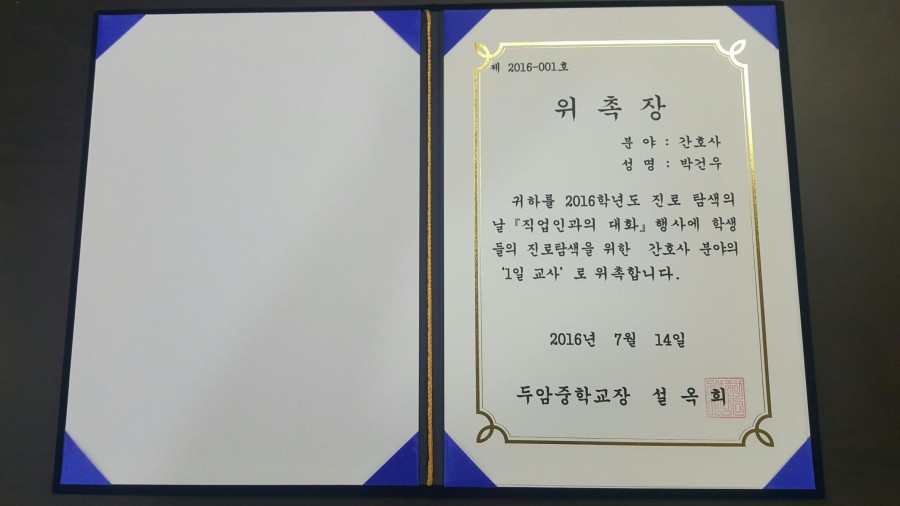 제 2016-001호
위 촉 장
분 야 : 간호사
성 명 : 박건우
귀하를 2016학년도 진로 탐색의
날 『직업인과의 대화』 행사에 학생
들의 진로탐색을 위한 간호사 분야의
'1일 교사' 로 위촉합니다.
2016년 7월 14일
두암중학교장 설 옥 희